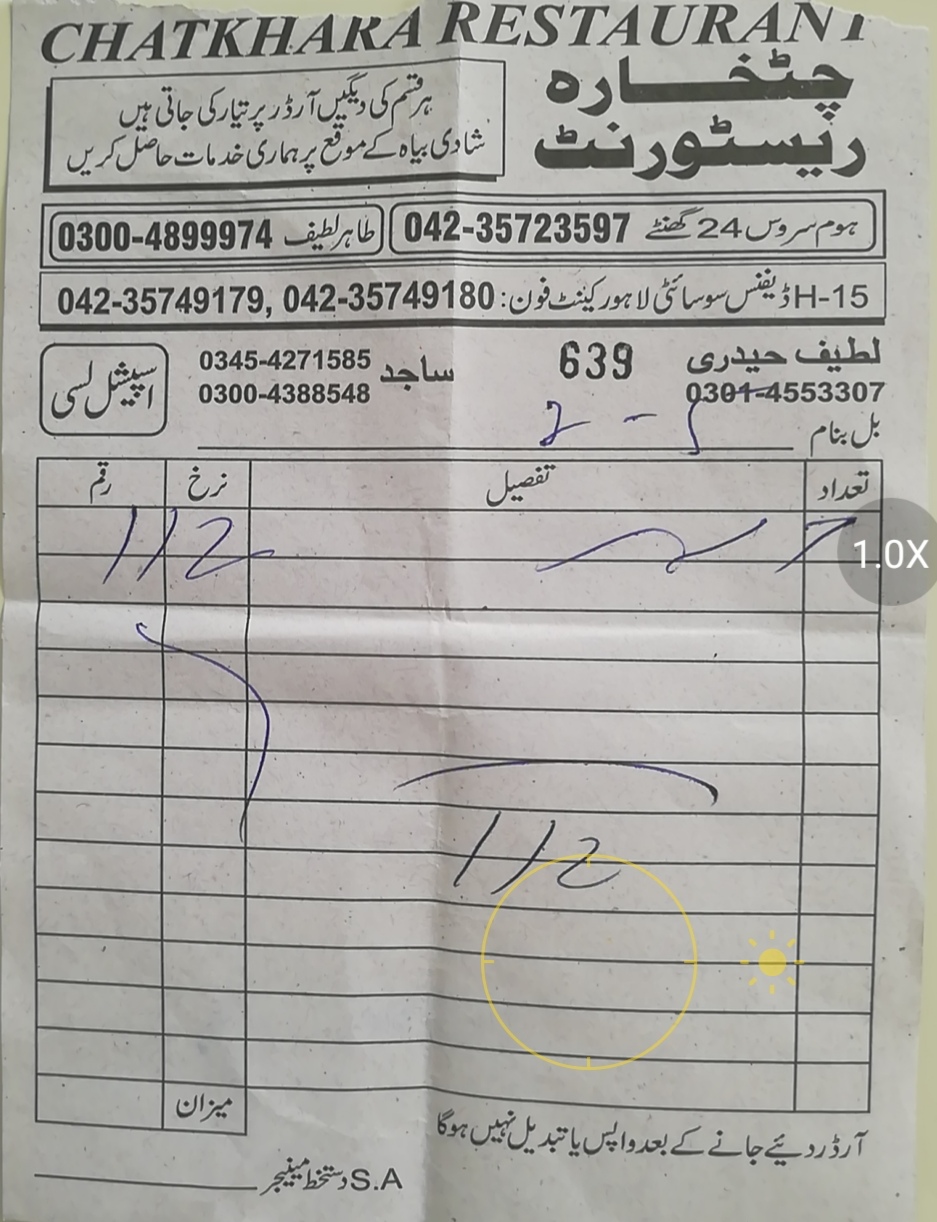 CHATKHARA RESTAURANT
چٹخارہ
ریسٹورنٹ
ہر قسم کی دیگیں آرڈر پر تیار کی جاتی ہیں
شادی بیاہ کے موقع پر ہماری خدمات حاصل کریں
ہوم سروس 24 گھنٹے 042-35723597
طاہر لطیف 0300-4899974
H-15 ڈیفنس سوسائٹی لاہور کینٹ فون: 042-35749180 ,042-35749179
لطیف حیدری
0301-4553307
639
ساجد
0345-4271585
0300-4388548
اسپیشل لسی
بل بنام
تعداد تفصیل نرخ رقم
112
112
میزان
آرڈر دئیے جانے کے بعد واپس یا تبدیل نہیں ہوگا
S.A دستخط مینیجر
1.0X